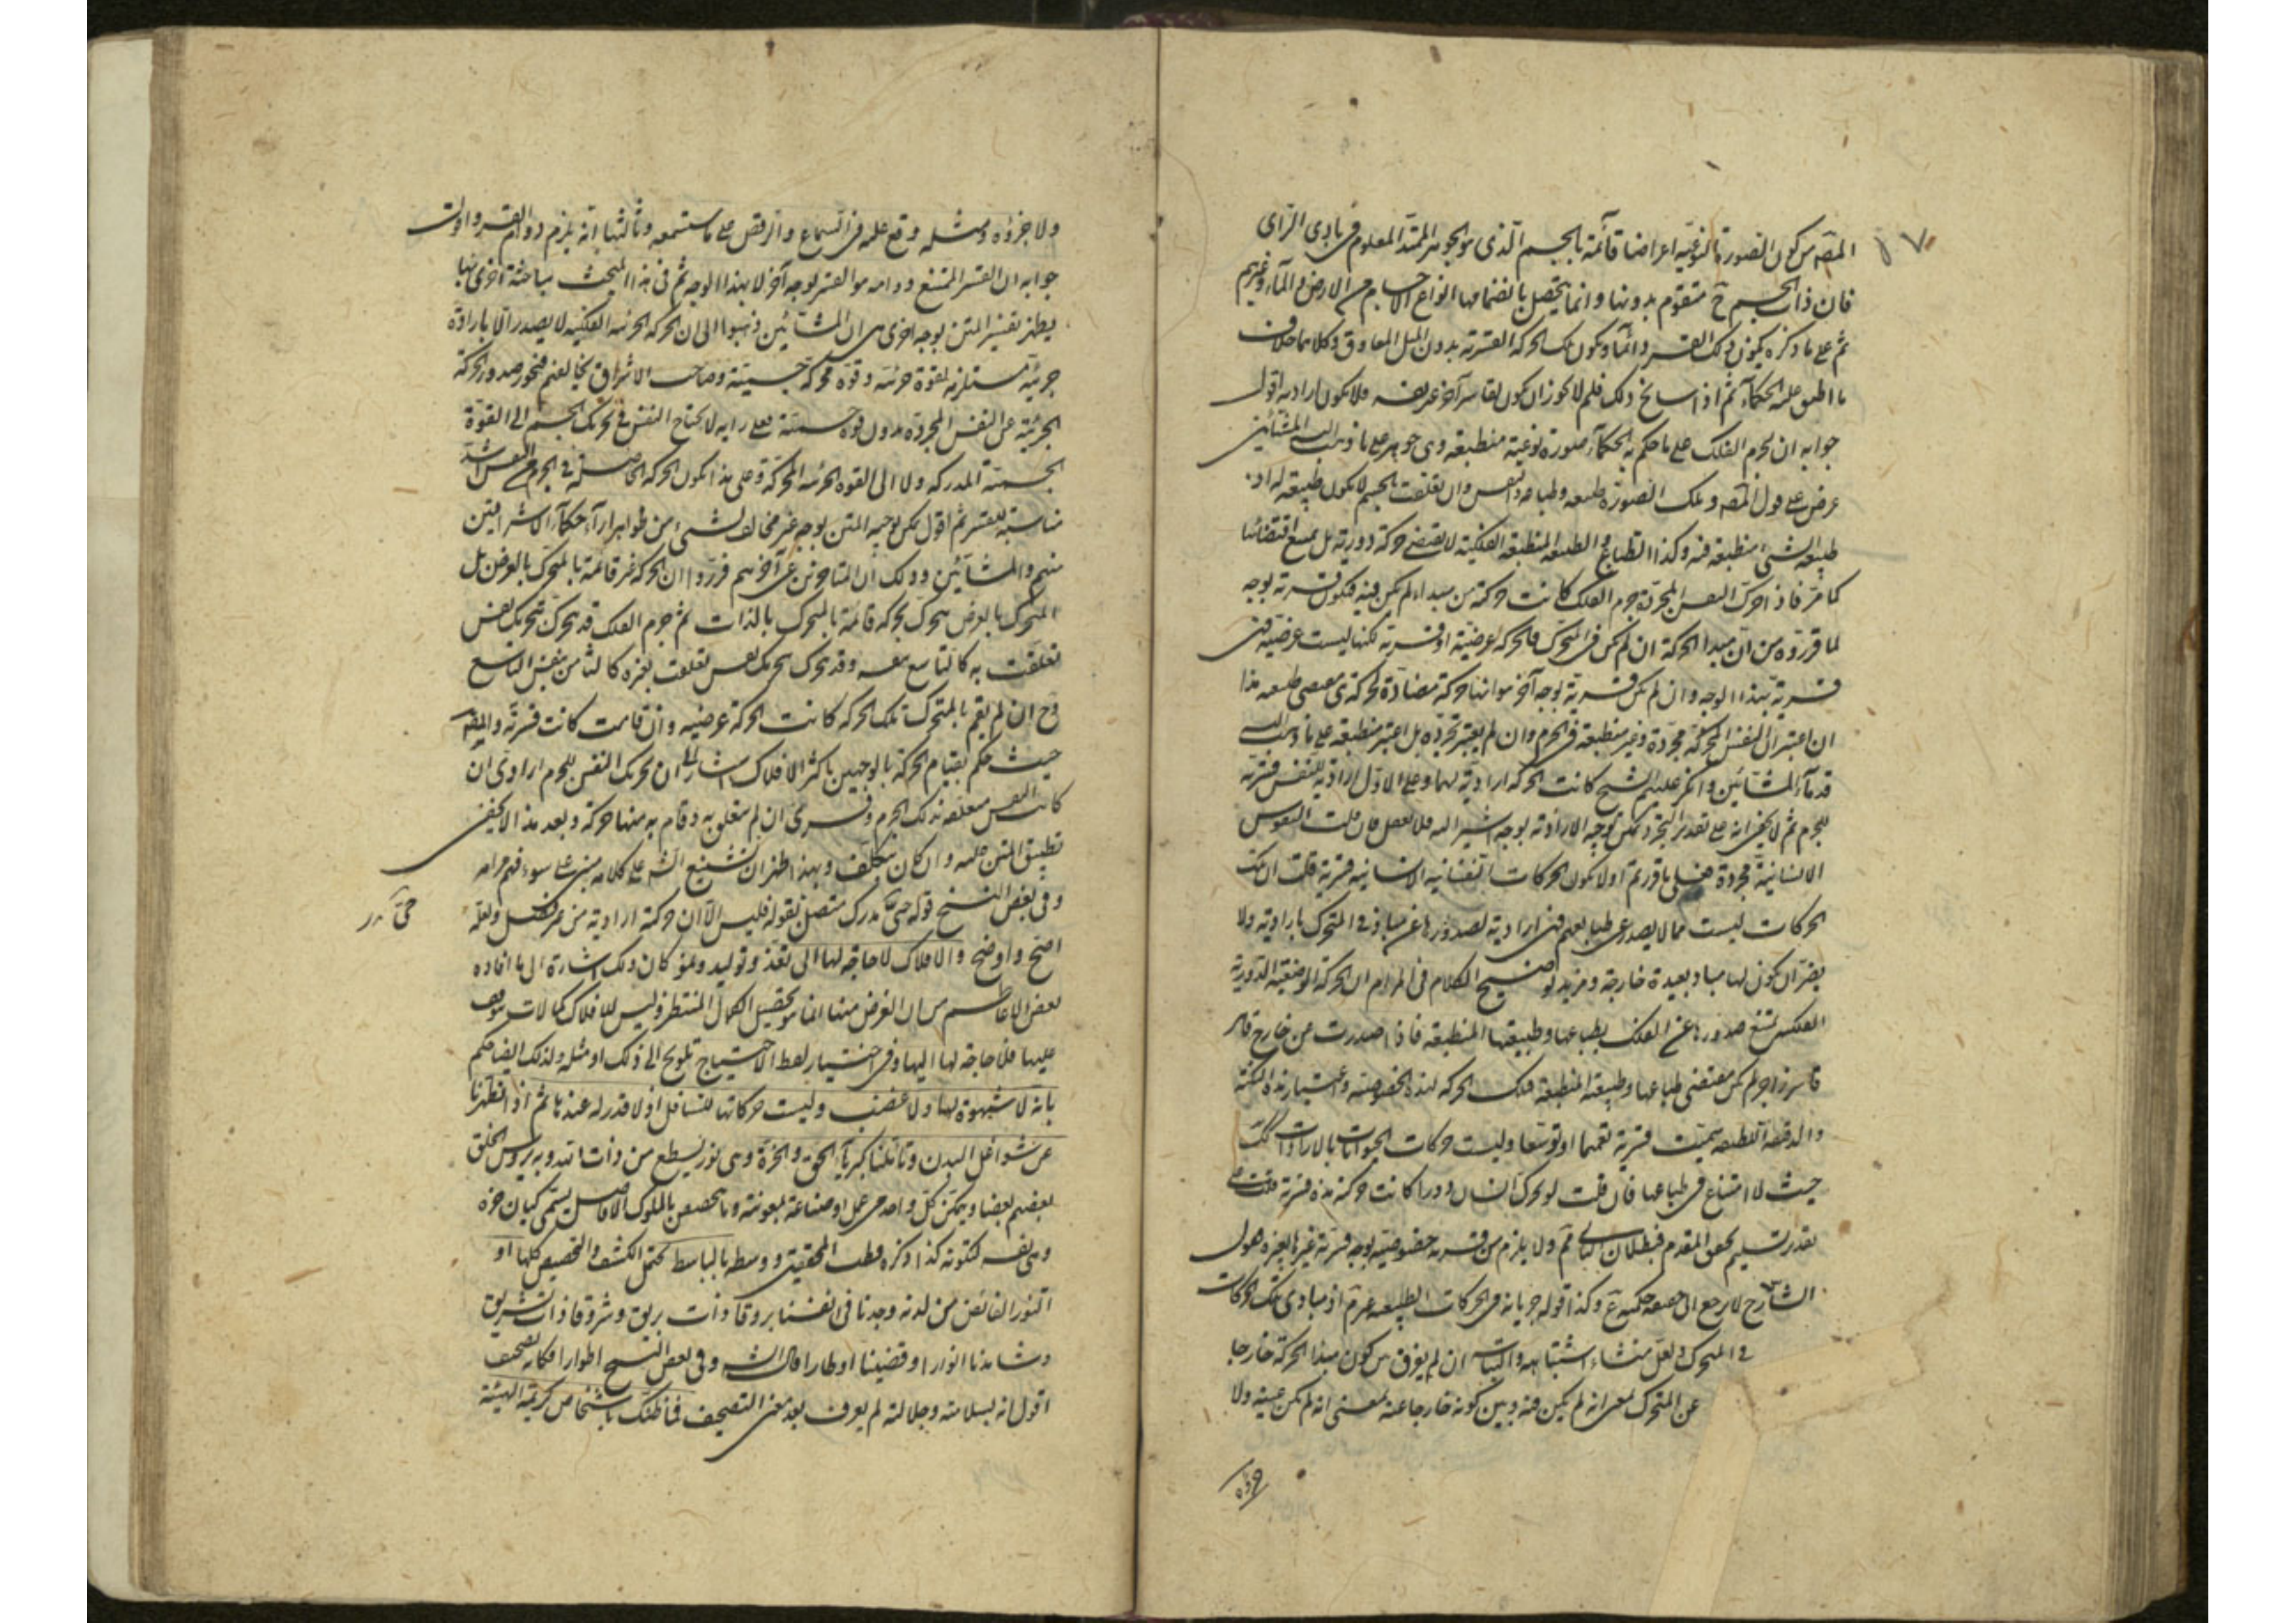 المصّه من كون الصورة النوعيّه اعراضا قائمة بالجسم الّذى هو الجوهر الممتدّ المعلوم فى بادى الرّاى
فان ذات الجسم ح متقوّم بدونها وانما يتحصّل بانضمامها انواع الاجسام من الارض والمآء وغيرهم
ثم على ما ذكره يكون ذلك القسر دائمآ ويكون تلك الحركة القسريّه بدون الميل المعاوق وكلاهما خلاف
ما اطبق عليه الحكمآء ثم اذا سانح ذلك فلم لا يجوز ان يكون لقاسر آخر غير نفسه فلا يكون اراديه اقول
جوابه ان لجرم الفلك على ما حكم به الحكمآء صورة نوعية منطبعة وهى جوهر على ما ذهب اليه المشّائين
عرض على قول المصّه وتلك الصورة طبيعه وطباعه والنفس وان تعلقت بالجسم لا يكون طبيعة له اذ
طبيعة الشىء منطبعة فيه وكذا الطباع والطبيعه المنطبعه الفلكية لا يقتضى حركة دوريّة بل يمتنع اقتضائها
كما مرّ فاذا حرّك النفس المجرّدة جرم الفلك كانت حركة من مبداء لم يكن فيه فيكون قسريّه بوجه
لما قرّروه من انّ مبدا الحركة ان لم يكن فى المتحرّك فالحركه عرضيّة او قسريّه لكنها ليست عرضيّه فهى
قسريّة بهذا الوجه وان لم يكن قسريّة بوجه آخر هو انها حركة مضادّة لحركة هى مقتضى طبيعه هذا
ان اعتبر انّ النفس المحركة مجرّدة وغير منطبعة فى الجرم وان لم يعتبر تجرّده بل اعتبر منطبعة على ما ذهب اليه
قدمآء المشّائين وانكر عليهم الشيخ كانت الحركه اراديّة لهما وعلى الاوّل اراديّة للنفس قسريّة
للجرم ثم لا يخفى انه على تقدير التجرد يمكن توجيه الاراديّه بوجه اشير اليه فلا تغفل فان قلت النفوس
الانسانيّة مجردة فعلى ما قررتم اولا يكون الحركات النفسانيه الانسانيه قسرية قلت ان تلك
الحركات ليست مما لا يصدر عن طبايعهم فهى اراديّة لصدورها عن مباد فى المتحرك باراديته ولا
يضرّ ان يكون لها مباد بعيدة خارجة ومزيد توضيح الكلام فى المرام ان الحركة الوضعيّه الدّوريّة
الفلكيه يمتنع صدورها عن الفلك بطباعها وطبيعتها المنطبعة فاذا صدرت من خارج قاهر
قاسر زاجر لم يكن مقتضى طباعها وطبيعته المنطبعة فتلك الحركه لهذه الخصوصيّه واعتبار هذه النكتة
والدقيقة اللطيفه سميّت قسريّة تعميما او توسّعا وليست حركات الحيوانات بالارادات كك
حيث لا امتناع فى طباعها فان قلت لو تحرك انسان دورا كانت حركته هذه قسرية قلت على
تقدير تسليم تحقق المقدم فبطلان التالى ثم ولا يلزم من قسريه خصوصيّه بوجه قسريّة غيرها بغيره فقول
الشارح لا يرجع الى حصيفه حكميه ع وكذا قوله جريانه فى الحركات الطبيعه غير تم اذ مبادى تلك الحركات
فى المتحرك ولعل منشاء اشتباهه والتباسه ان لم يفرق بين كون مبدا الحركة خارجا
عن المتحرك بمعنى انه لم يكن فيه وبين كونه خارجا عنه بمعنى انه لم يكن عينه ولا
جزؤه
ولا جزؤه ومثله وقع عليه فى السماع والرقص على ما ستسمعه وثالثها انّه يلزم دوام القسر واقول
جوابه ان القسر الممتنع دوامه هو القسر لوجه آخر لا بهذا الوجه ثم فى هذا المبحث مباحثة اخرى بها
يظهر تفسير المتن بوجه اخرى هى ان المشّائين ذهبوا الى ان الحركة الجزئيه الفلكيه لا يصدر الّا بارادة
جزئيّه مستلزمه لقوة جزئيه وقوّه محركة جسميّة وصاحب الاشراق يخالفهم فيجوّز صدور الحركة
الجزئيّه عن النفس المجردة بدون قوة جسميّة فعلى رايه لا يحتاج النفس فى تحريك الجسم الى القوّة
الجسميّة المدركه ولا الى القوه الجزئيه المحركة وعلى هذا يكون الحركة الحاصلة فى الجرم من النفس اشدّ
مناسبة للقسر ثم اقول يمكن توجيه المتن بوجه غير مخالف لشىء من ظواهر آرآء حكمآء الاشراقيين
منهم والمشّائين وذلك ان المتاخرين عن آخرهم قرّروا ان الحركة غير قائمة بالمتحرّك بالعرض بل
المتحرك بالعرض يتحرك بحركة قائمة بالمتحرك بالذات ثم جرم الفلك قد يتحرّك بتحريك نفس
تعلقت به كالتاسع بنفسه وقد يتحرك بتحريك نفس تعلقت بغيره كالثامن بنفس التاسع
وح ان لم يقم بالمتحرك تلك الحركة كانت الحركة عرضيه وان قامت كانت قسريّة والمصّه
حيث حكم بقيام الحركة بالوجهين باكثر الافلاك اشار الى ان تحريك النفس للجرم ارادى ان
كانت النفس متعلقة بذلك الجرم وقسرى ان لم يتعلق به وقام به منها حركة وبعد هذا لا يخفى
تطبيق المتن عليه وان كان بتكلّف وبهذا ظهر ان تشنيع الشه على كلامه مبنى على سوء فهم مرامه
وفى بعض النسخ قوله حىّ مدرك متصل بقوله فليس الّا ان حركة اراديّة من غير فصل ولعلّه
حىّ مدر
اصحّ واوضح والافلاك لا حاجة لها الى تغذّ وتوليد ونمو كان ذلك اشارة الى ما افاده
بعض الاعاظم من ان الغرض منها انما هو تحصيل الكمال المنتظر وليس للافلاك كمالات يتوقف
عليها فلا حاجة لها اليها وفى اختيار لفظ الاحتياج تلويح الى ذلك او مثله ولذلك ايضا حكم
بانه لا شهوة لها ولا غضب وليست حركاتها للسافل اذ لا قدر له عندها ثم اذا انظهرنا
عن شواغل البدن وتاملنا كبريآء الحق والخرّة وهى نور يسطع من ذات الله وبه يروس الخلق
بعضهم بعضا ويتمكن كل واحد من عمل او صناعة بمعونته وما يتخصّص بالملوك الافاضل يسمّى كيان خره
وهى بفسه لنكتوته كذا ذكره قطب المحققين ووسطه بالباسط يحتمل الكشف والتخصيص كلها او
النور الفائض من لدنه وجدنا فى انفسنا بروقآ ذات بريق وشروقا ذات تشريق
وشاهدنا انوارا وقضينا اوطارا قال الشه وفى بعض النسخ اطوارا فكانه تصحيف
اقول انه لسلامته وجلالته لم يعرف بعد معنى التصحيف فما ظنّك باشخاص كريمة الهيئة